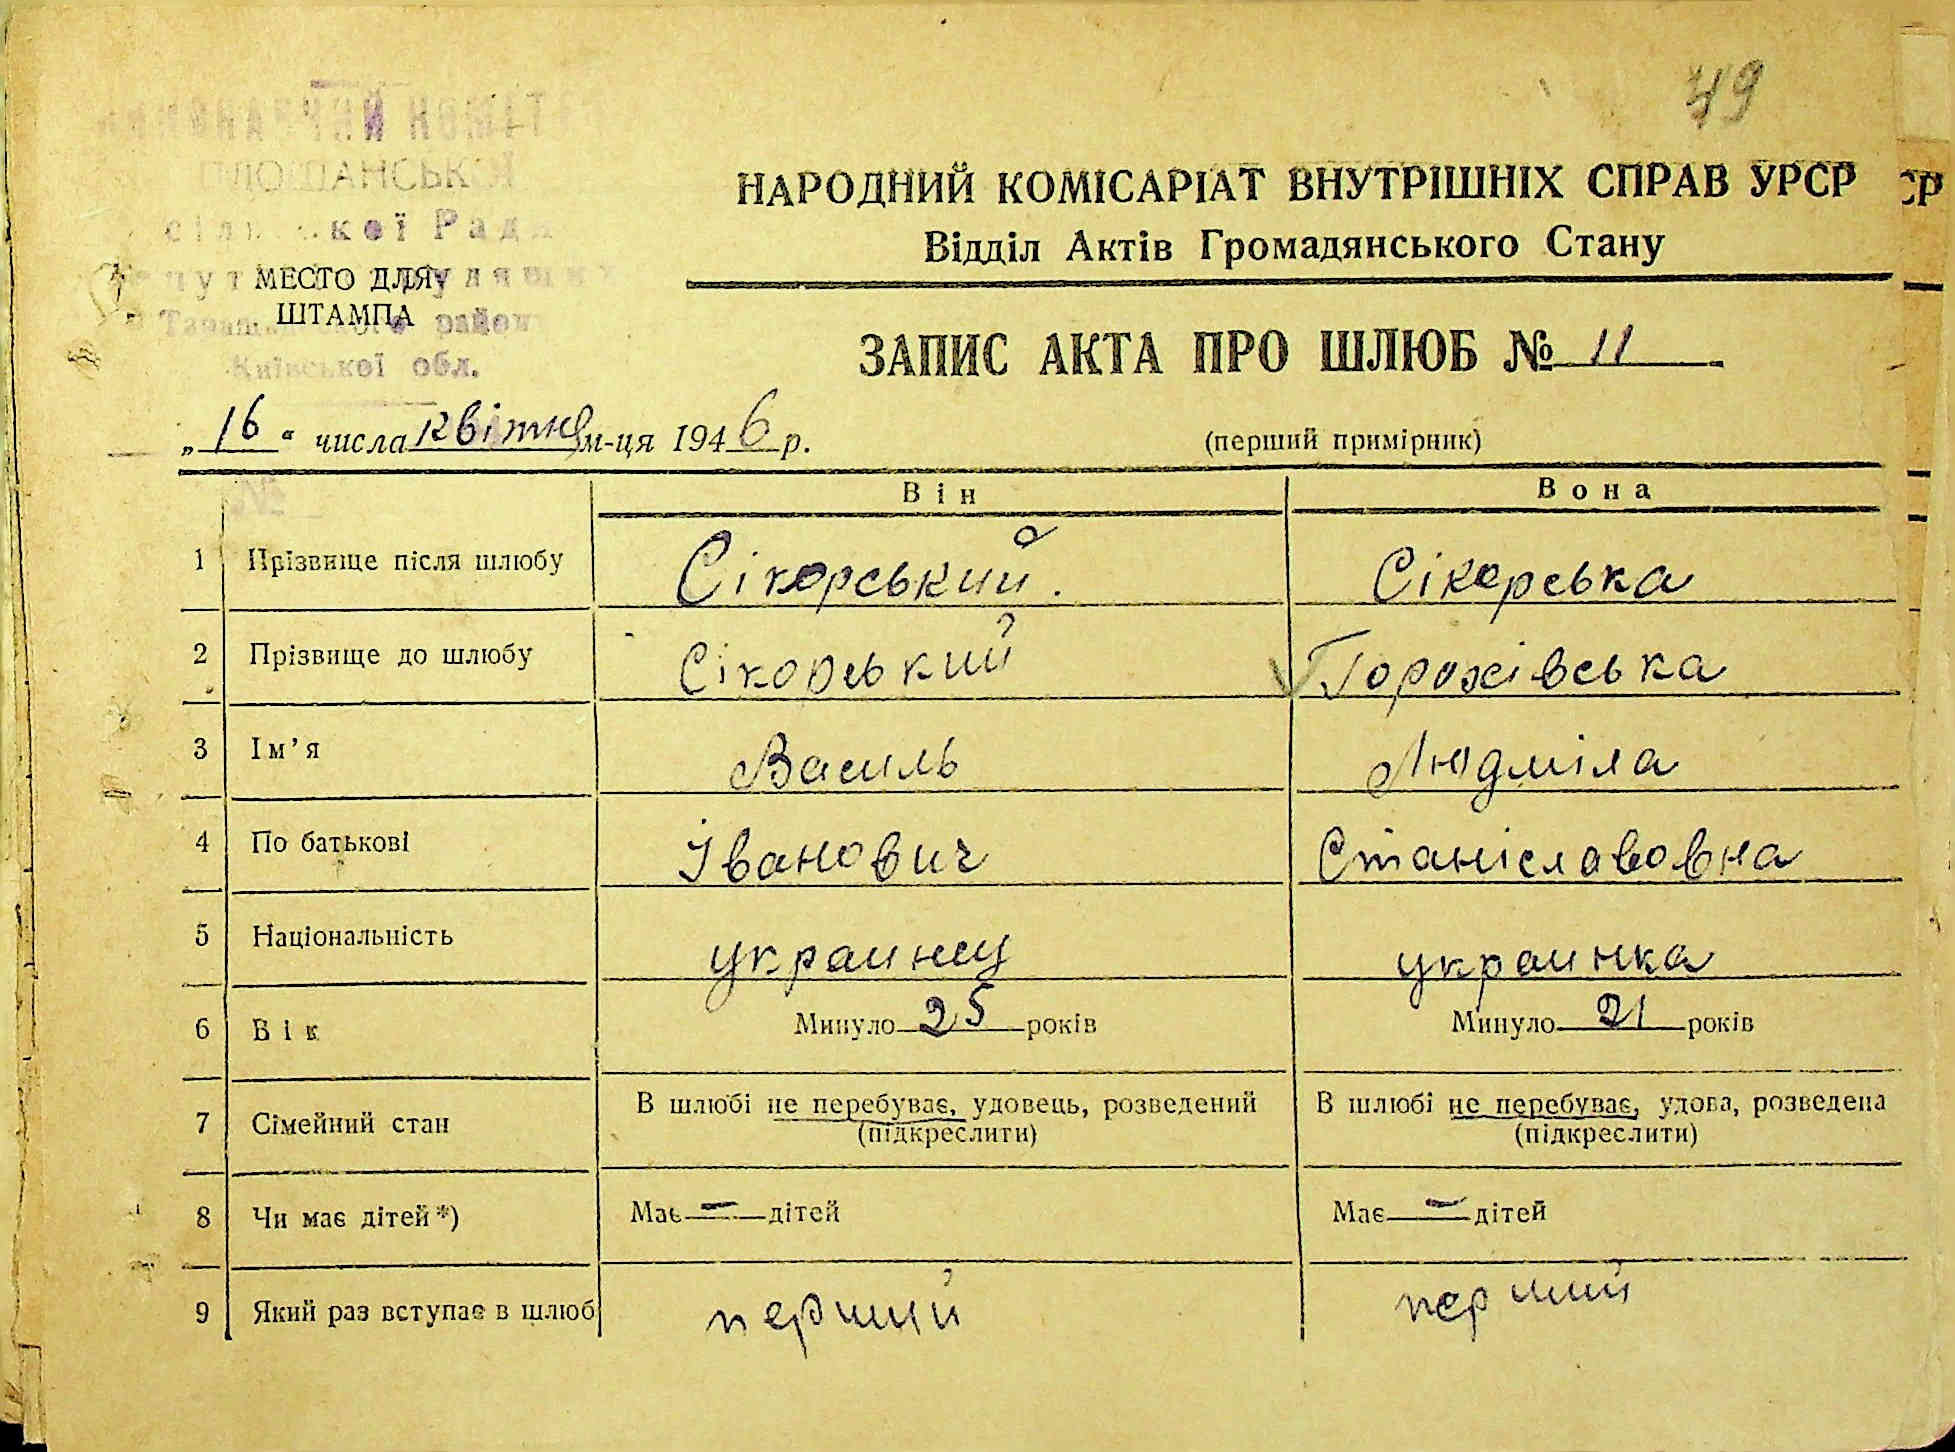 49
НАРОДНИЙ КОМІСАРІАТ ВНУТРІШНІХ СПРАВ УРСР
Відділ Актів Громадянського Стану
сільської Ради
МЕСТО ДЛЯ
ШТАМПА
Таращанського району
Київської обл.
ЗАПИС АКТА ПРО ШЛЮБ № 11
„16“ числа квітня м-ця 1946 р.
(перший примірник)
№
Він Вона
1 Прізвище після шлюбу Сікорський. Сікорська
2 Прізвище до шлюбу Сікорський Горожівська
3 Ім’я Василь Людміла
4 По батькові Іванович Станіславовна
5 Національність украинец украинка
6 Вік Минуло 25 років Минуло 21 років
7 Сімейний стан В шлюбі не перебуває, удовець, розведений В шлюбі не перебуває, удова, розведена
(підкреслити) (підкреслити)
8 Чи має дітей*) Має — дітей Має — дітей
9 Який раз вступає в шлюб перший перший
СР